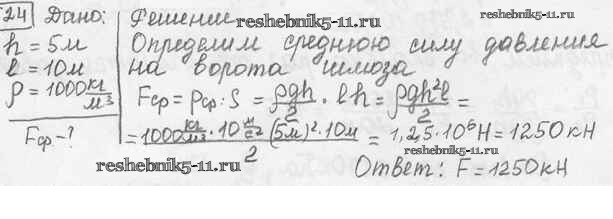 524 Дано:
h = 5м
l = 10м
ρ = 1000 кг/м³
Fср - ?
Решение
reshebnik5-11.ru
Определим среднюю силу давления
на ворота шлюза
reshebnik5-11.ru
Fср = ρср · S = ρgh/2 · lh = ρgh²l/2 =
= 1000 кг/м³ · 10 м/с² (5м)² · 10м / 2 = 1,25·10⁶Н = 1250 кН
reshebnik5-11.ru
reshebnik5-11.ru
Ответ: F = 1250 кН